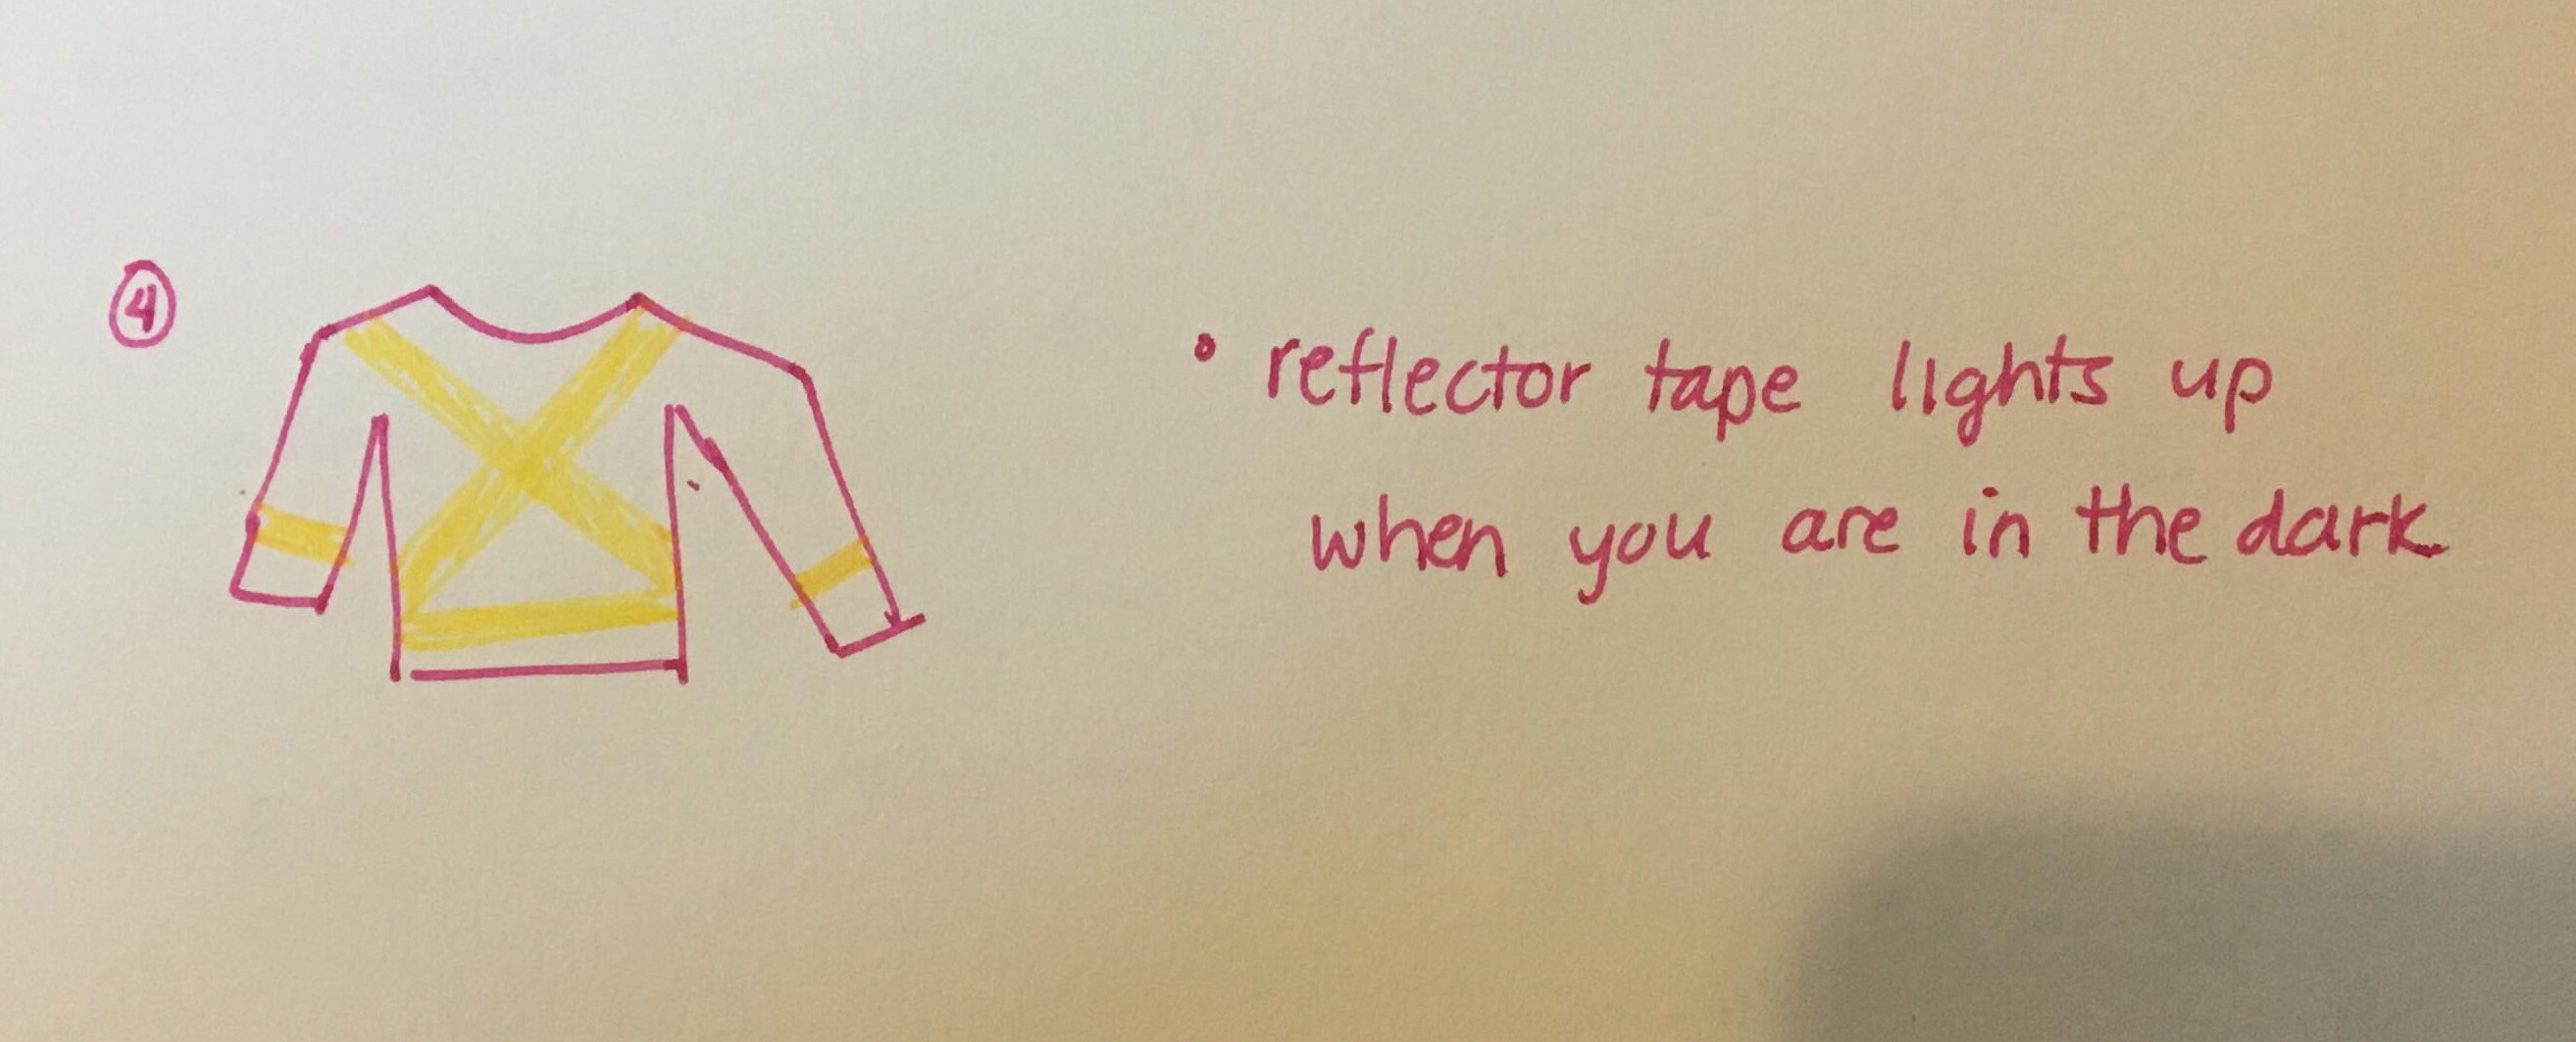 ④
• reflector tape lights up
when you are in the dark